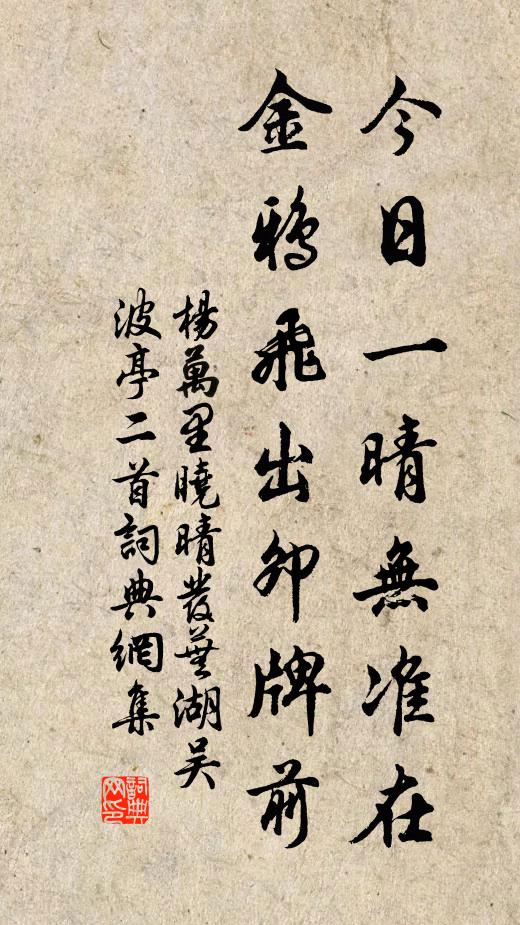 今日一晴無准在
金鴉飛出卯牌前
楊萬里曉晴發蕪湖吴
波亭二首詞典網集
詞典
网印